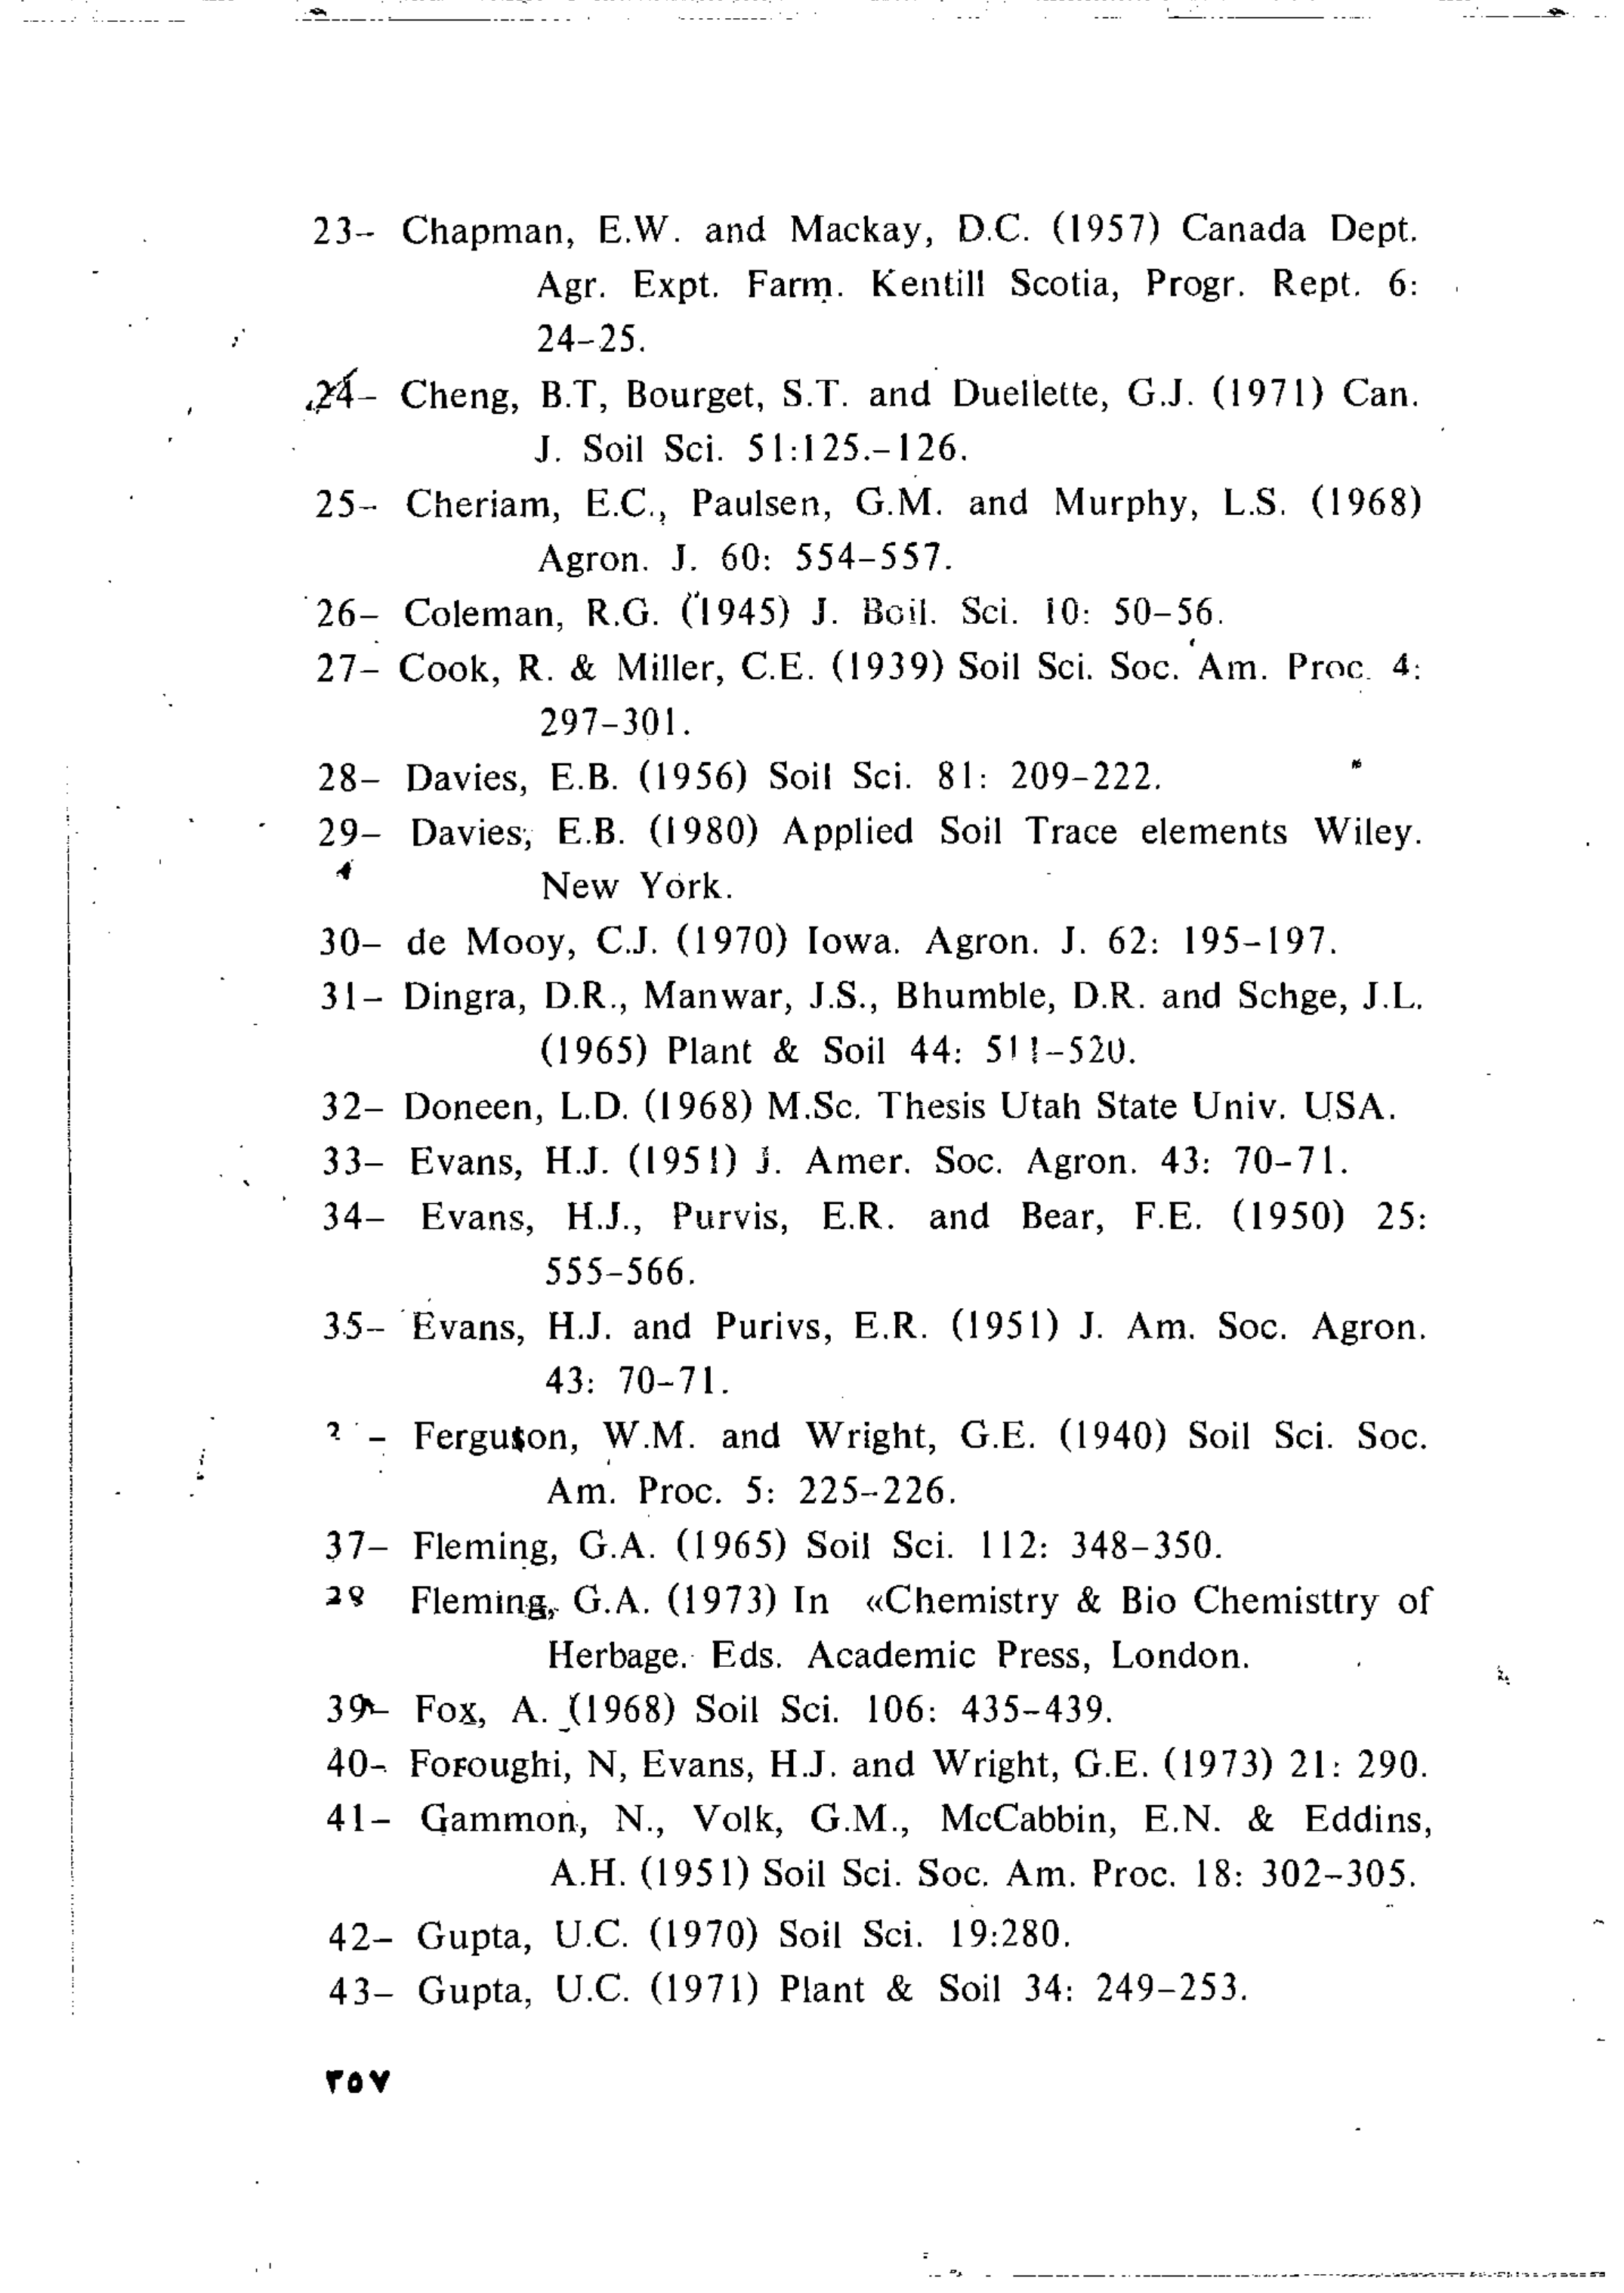 23- Chapman, E.W. and Mackay, D.C. (1957) Canada Dept.
Agr. Expt. Farm. Kentill Scotia, Progr. Rept. 6:
24-25.
24- Cheng, B.T, Bourget, S.T. and Duellette, G.J. (1971) Can.
J. Soil Sci. 51:125.-126.
25- Cheriam, E.C., Paulsen, G.M. and Murphy, L.S. (1968)
Agron. J. 60: 554-557.
26- Coleman, R.G. (1945) J. Boil. Sci. 10: 50-56.
27- Cook, R. & Miller, C.E. (1939) Soil Sci. Soc. Am. Proc. 4:
297-301.
28- Davies, E.B. (1956) Soil Sci. 81: 209-222.
29- Davies, E.B. (1980) Applied Soil Trace elements Wiley.
New York.
30- de Mooy, C.J. (1970) Iowa. Agron. J. 62: 195-197.
31- Dingra, D.R., Manwar, J.S., Bhumble, D.R. and Schge, J.L.
(1965) Plant & Soil 44: 511-520.
32- Doneen, L.D. (1968) M.Sc. Thesis Utah State Univ. USA.
33- Evans, H.J. (1951) J. Amer. Soc. Agron. 43: 70-71.
34- Evans, H.J., Purvis, E.R. and Bear, F.E. (1950) 25:
555-566.
35- Evans, H.J. and Purivs, E.R. (1951) J. Am. Soc. Agron.
43: 70-71.
- Ferguson, W.M. and Wright, G.E. (1940) Soil Sci. Soc.
Am. Proc. 5: 225-226.
37- Fleming, G.A. (1965) Soil Sci. 112: 348-350.
38 Fleming, G.A. (1973) In «Chemistry & Bio Chemisttry of
Herbage. Eds. Academic Press, London.
39- Fox, A. (1968) Soil Sci. 106: 435-439.
40- Foroughi, N, Evans, H.J. and Wright, G.E. (1973) 21: 290.
41- Gammon, N., Volk, G.M., McCabbin, E.N. & Eddins,
A.H. (1951) Soil Sci. Soc. Am. Proc. 18: 302-305.
42- Gupta, U.C. (1970) Soil Sci. 19:280.
43- Gupta, U.C. (1971) Plant & Soil 34: 249-253.
٣٥٧